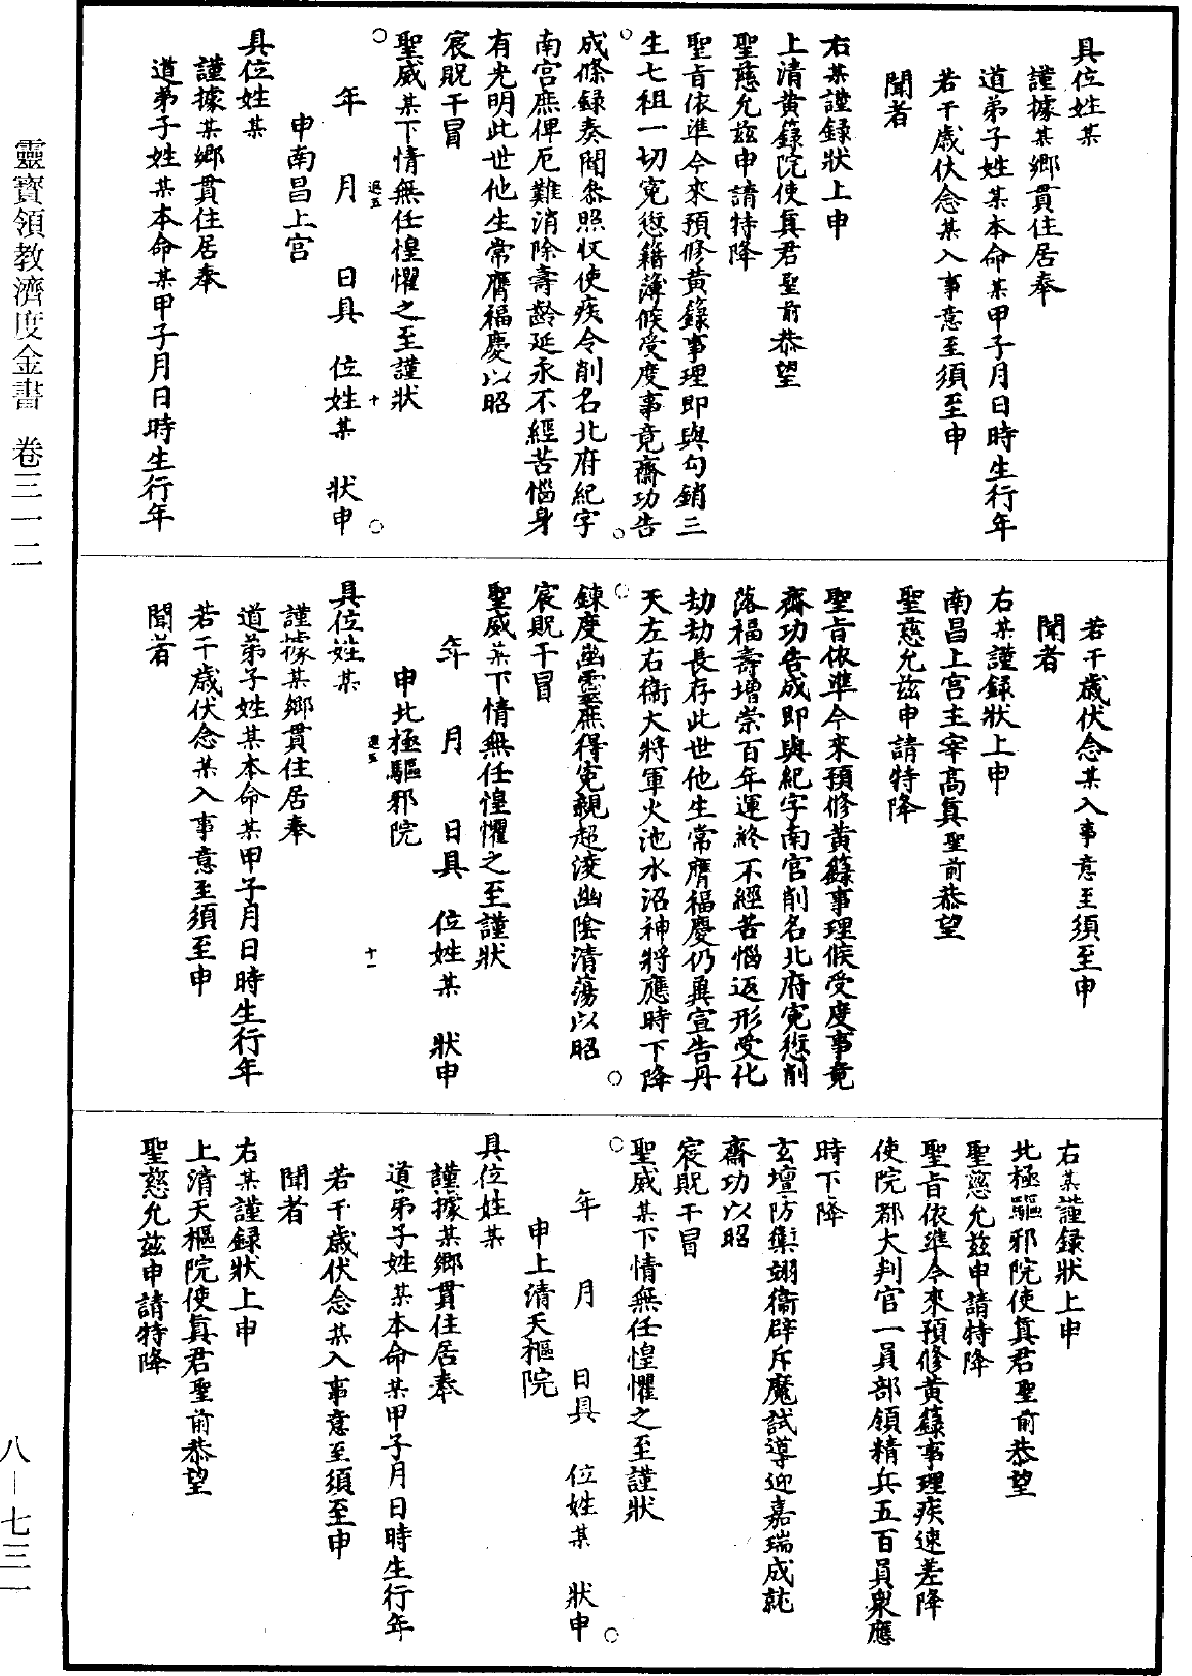 具位姓某
謹據某鄉貫住居奉
道弟子姓某本命某甲子月日時生行年
若干歲伏念某入事意至須至申
聞者
右某謹錄狀上申
上清黃籙院使真君聖前恭望
聖慈允茲申請特降
聖旨依準今來預修黃籙事理即與勾銷三
生七祖一切寃愆籍簿候受度事竟齋功告
成條録奏聞叅照收使疾令削名北府紀字
南宮庶俾厄難消除壽齡延永不經苦惱身
有光明此世他生常膺福慶以昭
宸貺干冒
聖威某下情無任惶懼之至謹狀
年 月 日具 位姓某 狀申
申南昌上宮
具位姓某
謹據某鄉貫住居奉
道弟子姓某本命某甲子月日時生行年
十
若干歲伏念某入事意至須至申
聞者
右某謹録狀上申
南昌上宮主宰高真聖前恭望
聖慈允茲申請特降
聖旨依準今來預修黃籙事理候受度事竟
齋功告成即與紀字南宮削名北府寃愆削
落福壽增崇百年運終不經苦惱返形受化
劫劫長存此世他生常膺福慶仍冀宣告丹
天左右衛大將軍火池水沼神將應時下降
鍊度幽靈庶得寃親超淩幽陰清蕩以昭
宸貺干冒
聖威某下情無任惶懼之至謹狀
年 月 日具 位姓某 狀申
申北極驅邪院
具位姓某
謹據某鄉貫住居奉
道弟子姓某本命某甲子月日時生行年
若干歲伏念某入事意至須至申
聞者
十一
右某謹録狀上申
北極驅邪院使真君聖前恭望
聖慈允茲申請特降
聖旨依準今來預修黃籙事理疾速差降
使院都大判官一員部領精兵五百員衆應
時下降
玄壇防衛翊衛辟斥魔試導迎嘉瑞成就
齋功以昭
宸貺干冒
聖威某下情無任惶懼之至謹狀
年 月 日具 位姓某 狀申
申上清天樞院
具位姓某
謹據某鄉貫住居奉
道弟子姓某本命某甲子月日時生行年
若干歲伏念某入事意至須至申
聞者
右某謹録狀上申
上清天樞院使真君聖前恭望
聖慈允茲申請特降
靈寶領教濟度金書 卷三一二
八—七三一